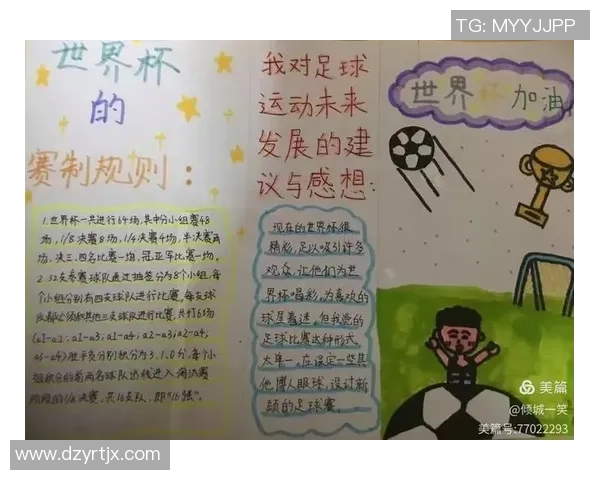 TG: MYYJJPP
世界杯
的
赛制规则：
1.世界杯一共进行64场,其中分小组赛48
场,1/8决赛8场,1/4决赛4场,半决赛两
场,决三、四名比赛一场,冠亚军比赛一场。
2.32支参赛球队通过抽签分为8个小组,每
个小组分别有四支球队进行比赛,每支球
队都必须和其他三支球队进行比赛,共打6场
(a1-a2; a1-a3; a1-a4; a2-a3; a2-a4;
a3-a4)胜平负分别积分为3、1、0分,每个小
组积分的前两名球队出线进入淘汰赛
阶段的1/8决赛,共16支队,即“16强”。
我对足球
运动未来
发展的建
议与感想:
现在的世界杯很
精彩,足以吸引许多
观众,让他们为世
界杯喝彩,为喜欢的
球星着迷,但我觉的
足球比赛这种形式
太单一,应设定一些其
他博人眼球,设计新
颖的足球赛。
世界杯加油
美篇
@倾城一笑
美篇号:77022293
www.dzyrtjx.com